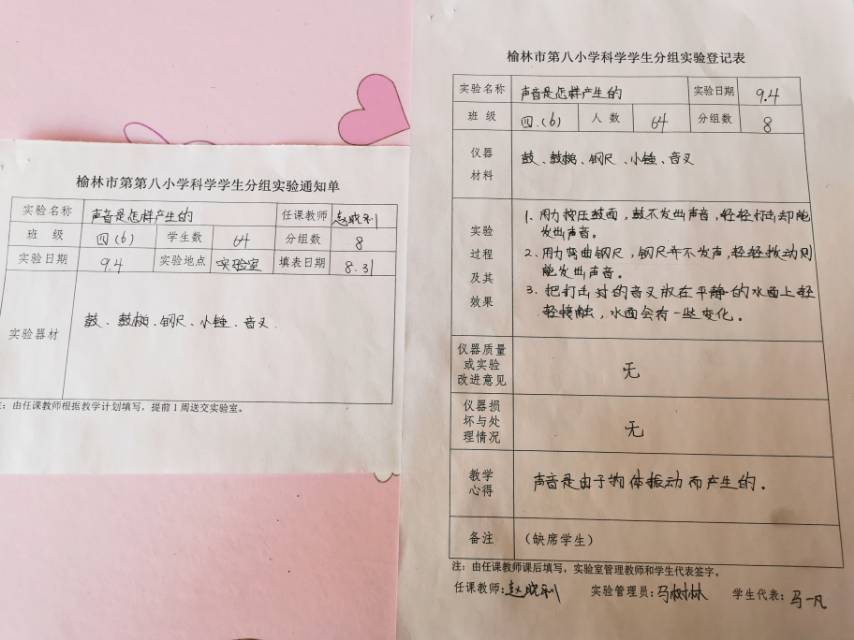 榆林市第第八小学科学学生分组实验通知单
实验名称 声音是怎样产生的 任课教师
班 级 四(6) 学生数 64 分组数 8
实验日期 9.4 实验地点 实验室 填表日期 8.31
实验器材 鼓、鼓槌、钢尺、小锤、音叉
:由任课教师根据教学计划填写,提前1周送交实验室。
榆林市第八小学科学学生分组实验登记表
实验名称 声音是怎样产生的 实验日期 9.4
班 级 四(6) 人 数 64 分组数 8
仪器
材料
鼓、鼓槌、钢尺、小锤、音叉
实验
过程
及其
效果
1、用力按压鼓面,鼓不发出声音,轻轻打击却能
发出声音。
2、用力弯曲钢尺,钢尺并不发声,轻轻拨动则
能发出声音。
3、把打击过的音叉放在平静的水面上轻
轻接触,水面会有一些变化。
仪器质量
或实验
改进意见
无
仪器损
坏与处
理情况
无
教学
心得
声音是由于物体振动而产生的。
备注 (缺席学生)
注:由任课教师课后填写,实验室管理教师和学生代表签字。
任课教师: 实验管理员:马树林 学生代表:马一凡